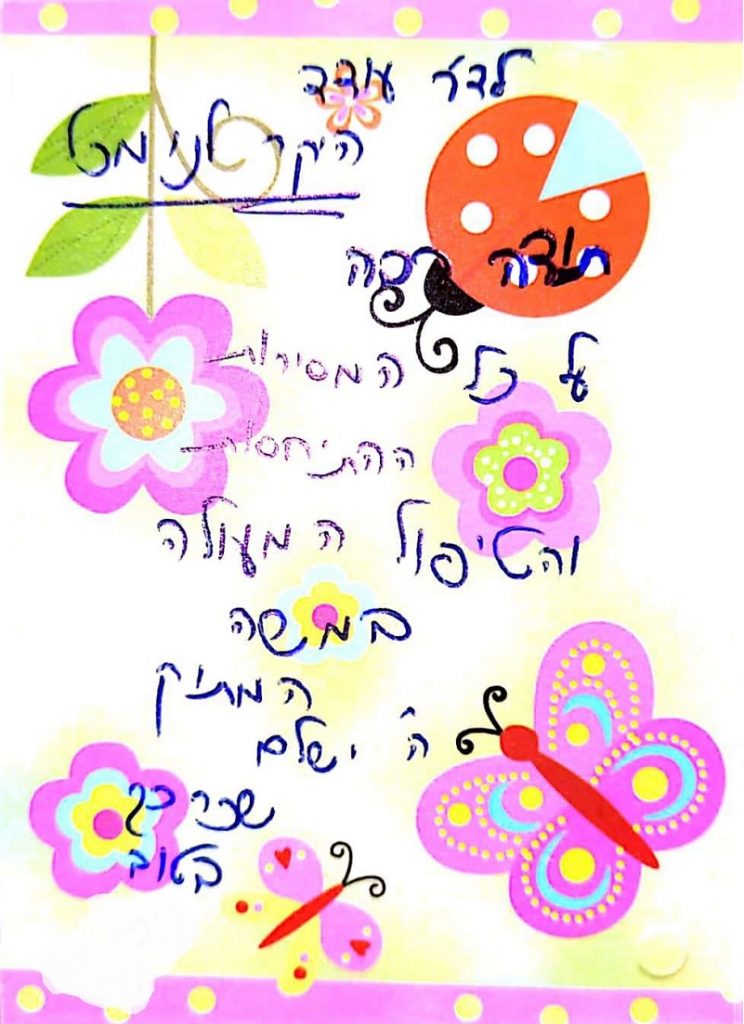 לד״ר עודד
היקר לנו מכל
תודה רבה
על כל המסירות
ההתיחסות
והטיפול המעולה
במשה
המתוק
ה' ישלם
שכרכך
בטוב